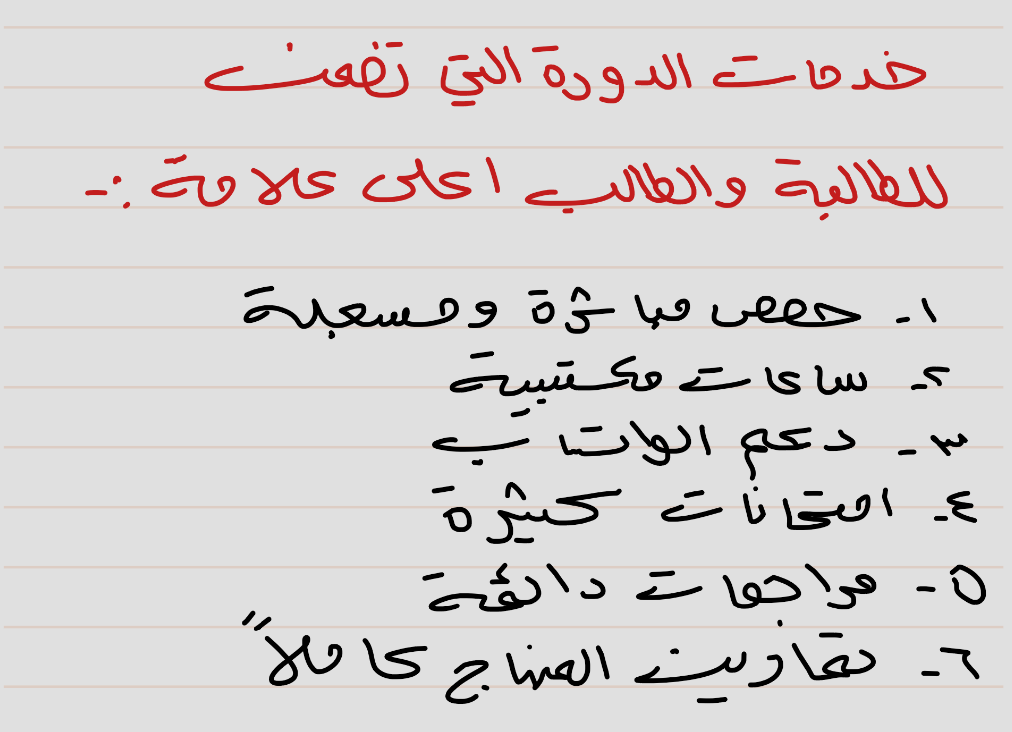 خدمات الدورة التي تضمن
للطالبة والطالب اعلى علامة :-
١- حصص مباشرة ومسجلة
٢- ساعات مكتبية
٣- دعم الواتساب
٤- امتحانات كثيرة
٥- مراجعات دائمة
٦- تمارين المنهاج كاملاً